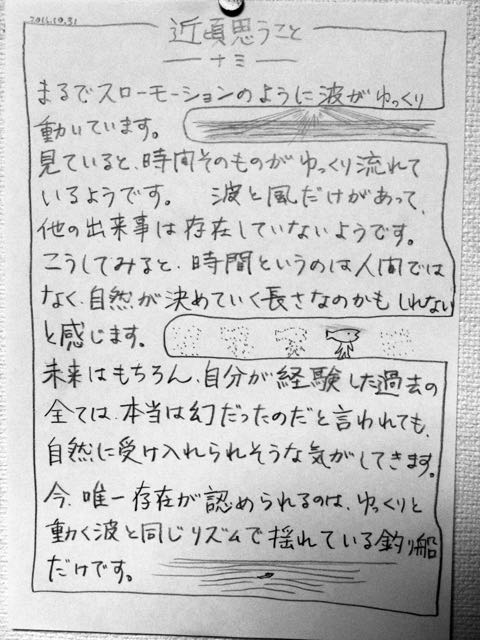 2016.10.31
近頃思うこと
ーナミー
まるでスローモーションのように波がゆっくり
動いています。
見ていると、時間そのものがゆっくり流れて
いるようです。 波と風だけがあって、
他の出来事は存在していないようです。
こうしてみると、時間というのは人間では
なく、自然が決めていく長さなのかもしれない
と感じます。
未来はもちろん、自分が経験した過去の
全ては、本当は幻だったのだと言われても、
自然に受け入れられそうな気がしてきます。
今、唯一存在が認められるのは、ゆっくりと
動く波と同じリズムで揺れている釣り船
だけです。